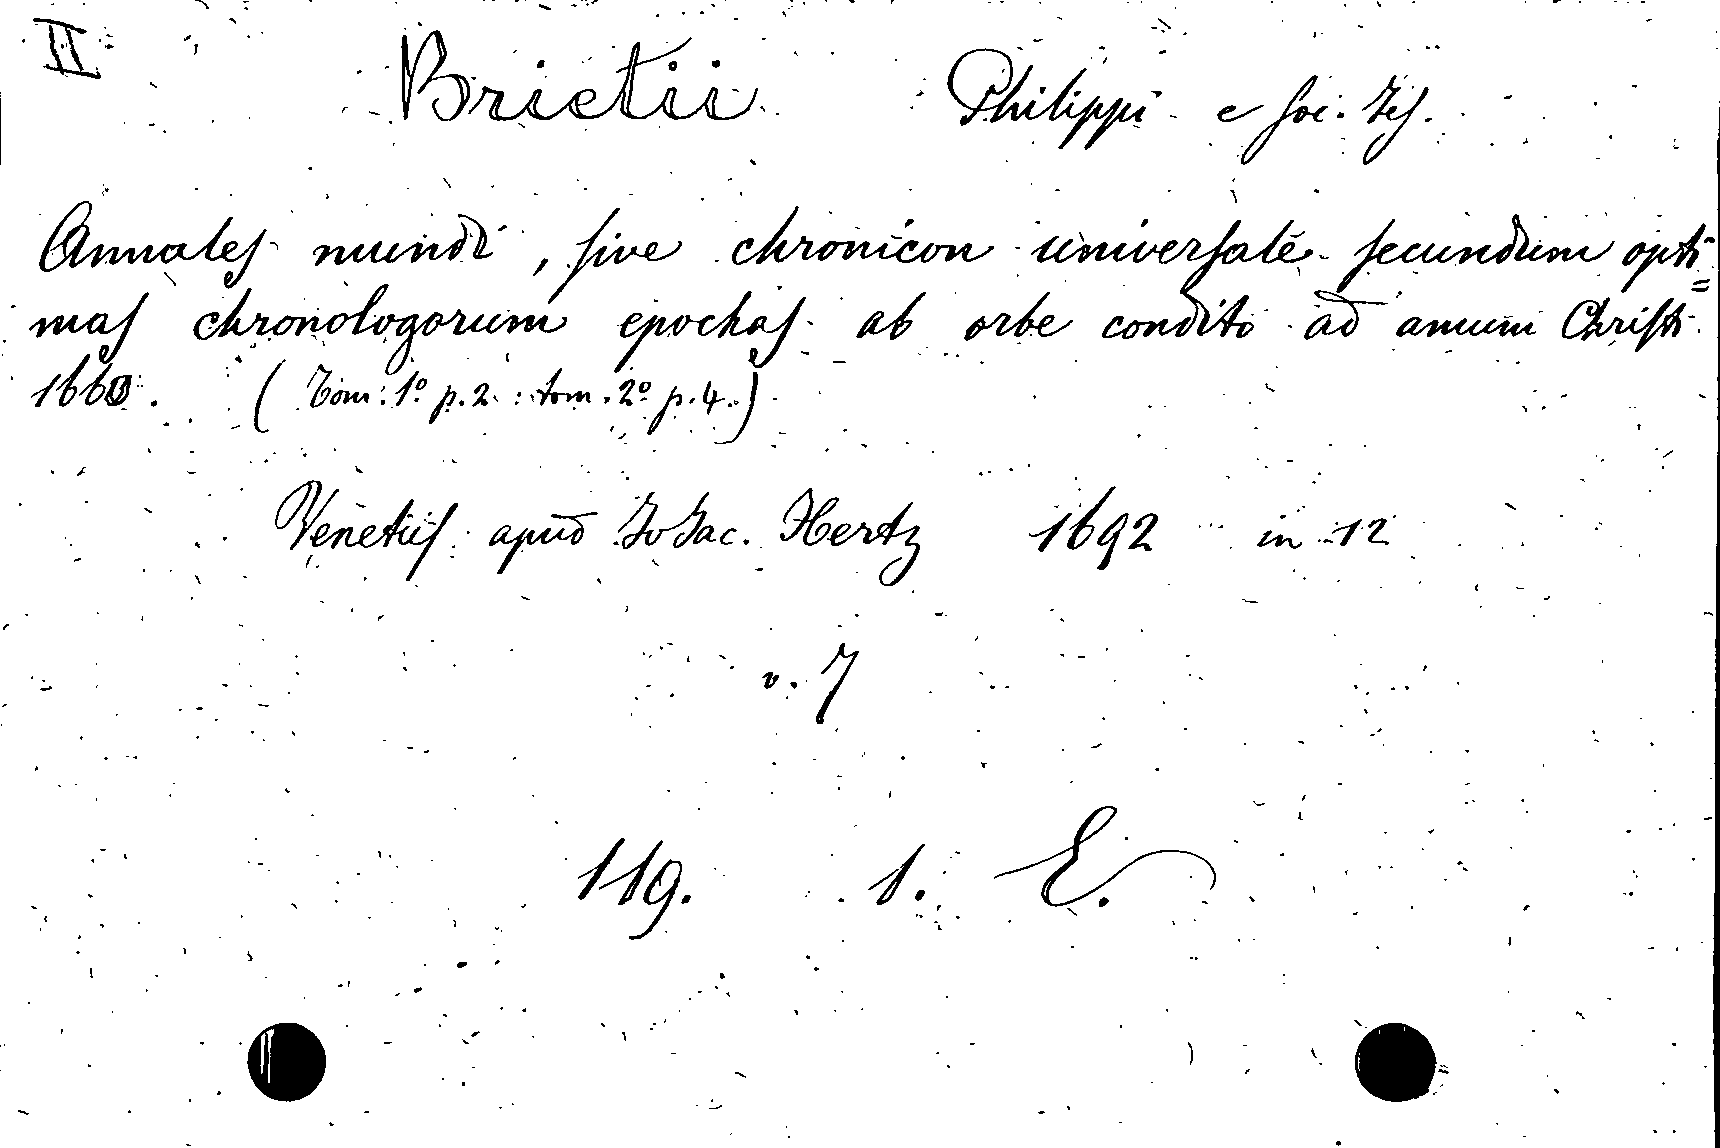 II
Brietii Philippi e Soc. Jes.
Annales mundi, sive chronicon universale secundum opti=
mas chronologorum epochas ab orbe condito ad annum Christi
1660. (Tom: 1º p. 2. : tom. 2º p. 4.)
Venetiis apud Jo Jac. Hertz 1692 in 12
v. 7
119. 1. E.